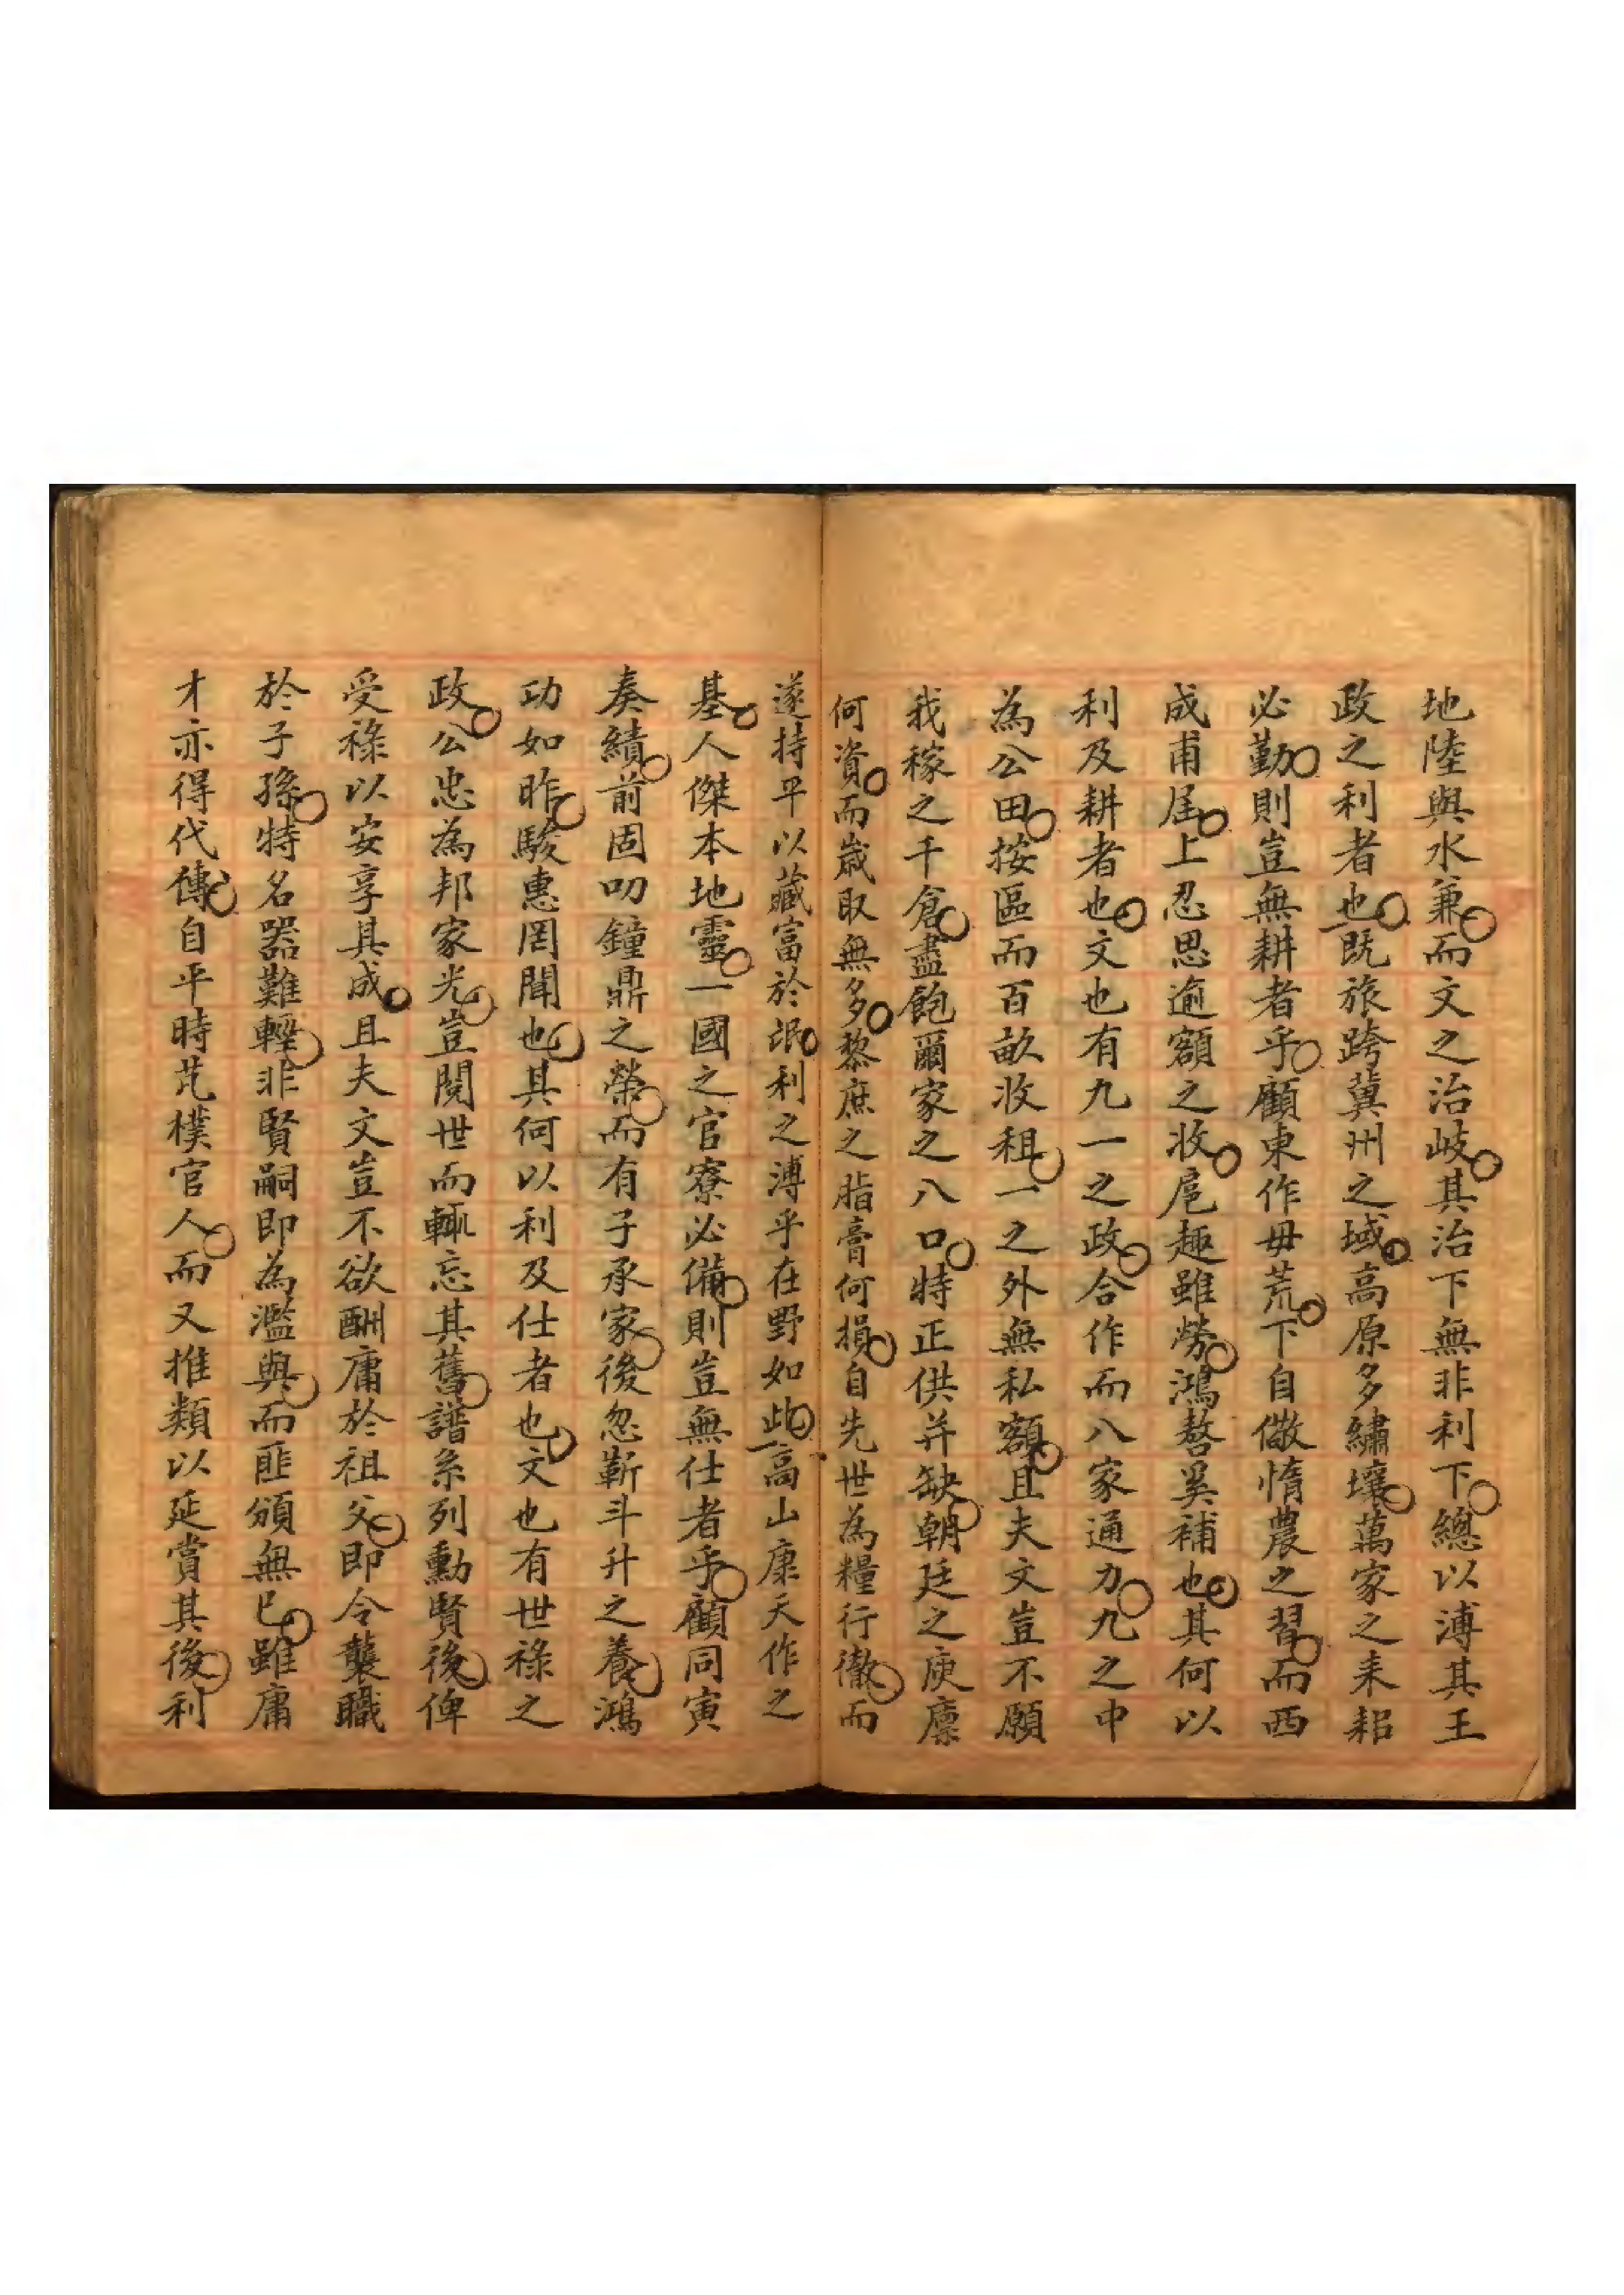 地陸與水兼而文之治岐其治下無非利下總以溥其王
政之利者也既旅跨冀州之域高原多繡壤萬家之耒耜
必勤則豈無耕者乎顧東作毋荒下自儆惰農之習而西
成甫屆上忍思逾額之收扈趣雖勞鴻嗸奚補也其何以
利及耕者也文也有九一之政合作而八家通力九之中
為公田按區而百畝收租一之外無私額且夫文豈不願
我稼之千倉盡飽爾家之八口特正供并缺朝廷之庾廩
何資而歲取無多黎庶之脂膏何損自先世為糧行徹而
遂持平以藏富於氓利之溥乎在野如此高山康天作之
基人傑本地靈一國之官寮必備則豈無仕者乎顧同寅
奏績前固叨鐘鼎之榮而有子承家後忽靳斗升之養鴻
功如昨駿惠罔聞也其何以利及仕者也文也有世祿之
政公忠為邦家光豈閱世而輒忘其舊譜系列勳賢後俾
受祿以安享其成且夫文豈不欲酬庸於祖父即令襲職
於子孫特名器難輕非賢嗣即為濫與而匪頒無已雖庸
才亦得代傳自平時芃樸官人而又推類以延賞其後利